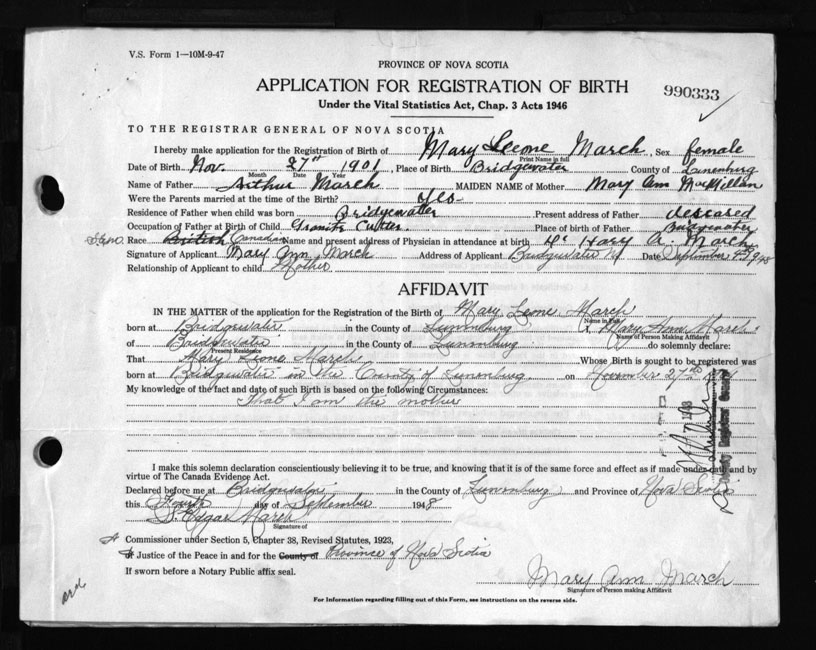 V.S. Form 1—10M-9-47
PROVINCE OF NOVA SCOTIA
APPLICATION FOR REGISTRATION OF BIRTH
990333
Under the Vital Statistics Act, Chap. 3 Acts 1946
TO THE REGISTRAR GENERAL OF NOVA SCOTIA
I hereby make application for the Registration of Birth of Mary Leone March, Sex female
Print Name in full
Date of Birth Nov. 27th 1901, Place of Birth Bridgewater County of Lunenburg
Month Date Year
Name of Father Arthur March MAIDEN NAME of Mother Mary Ann MacMillan
Were the Parents married at the time of Birth? Yes-
Residence of Father when child was born Bridgewater Present address of Father deseased
Occupation of Father at Birth of Child Granite Cutter. Place of birth of Father Bridgewater
Race British Canadian Name and present address of Physician in attendance at birth March
Signature of Applicant Mary Ann March Address of Applicant Bridgewater NS Date September 4th 1948
Relationship of Applicant to child Mother
AFFIDAVIT
IN THE MATTER of the application for the Registration of the Birth of Mary Leone March
Name in Full
born at Bridgewater in the County of Lunenburg I, Mary Ann March
Name of Person Making Affidavit
of Bridgewater in the County of Lunenburg do solemnly declare:
Present Residence
That Mary Leone March Whose Birth is sought to be registered was
born at Bridgewater in the County of Lunenburg on November 27th
My knowledge of the fact and date of such Birth is based on the following Circumstances:
That I am the mother
I make this solemn declaration conscientiously believing it to be true, and knowing that it is of the same force and effect as if made under oath and by
virtue of The Canada Evidence Act.
Declared before me at Bridgewater in the County of Lunenburg and Province of Nova Scotia
this Fourth day of September 1948
S. Edgar March
Signature of
Commissioner under Section 5, Chapter 38, Revised Statutes, 1923,
or Justice of the Peace in and for the County of Province of Nova Scotia
If sworn before a Notary Public affix seal.
Mary Ann March
Signature of Person making Affidavit
For Information regarding filling out of this Form, see instructions on the reverse side.
Deputy Registrar General